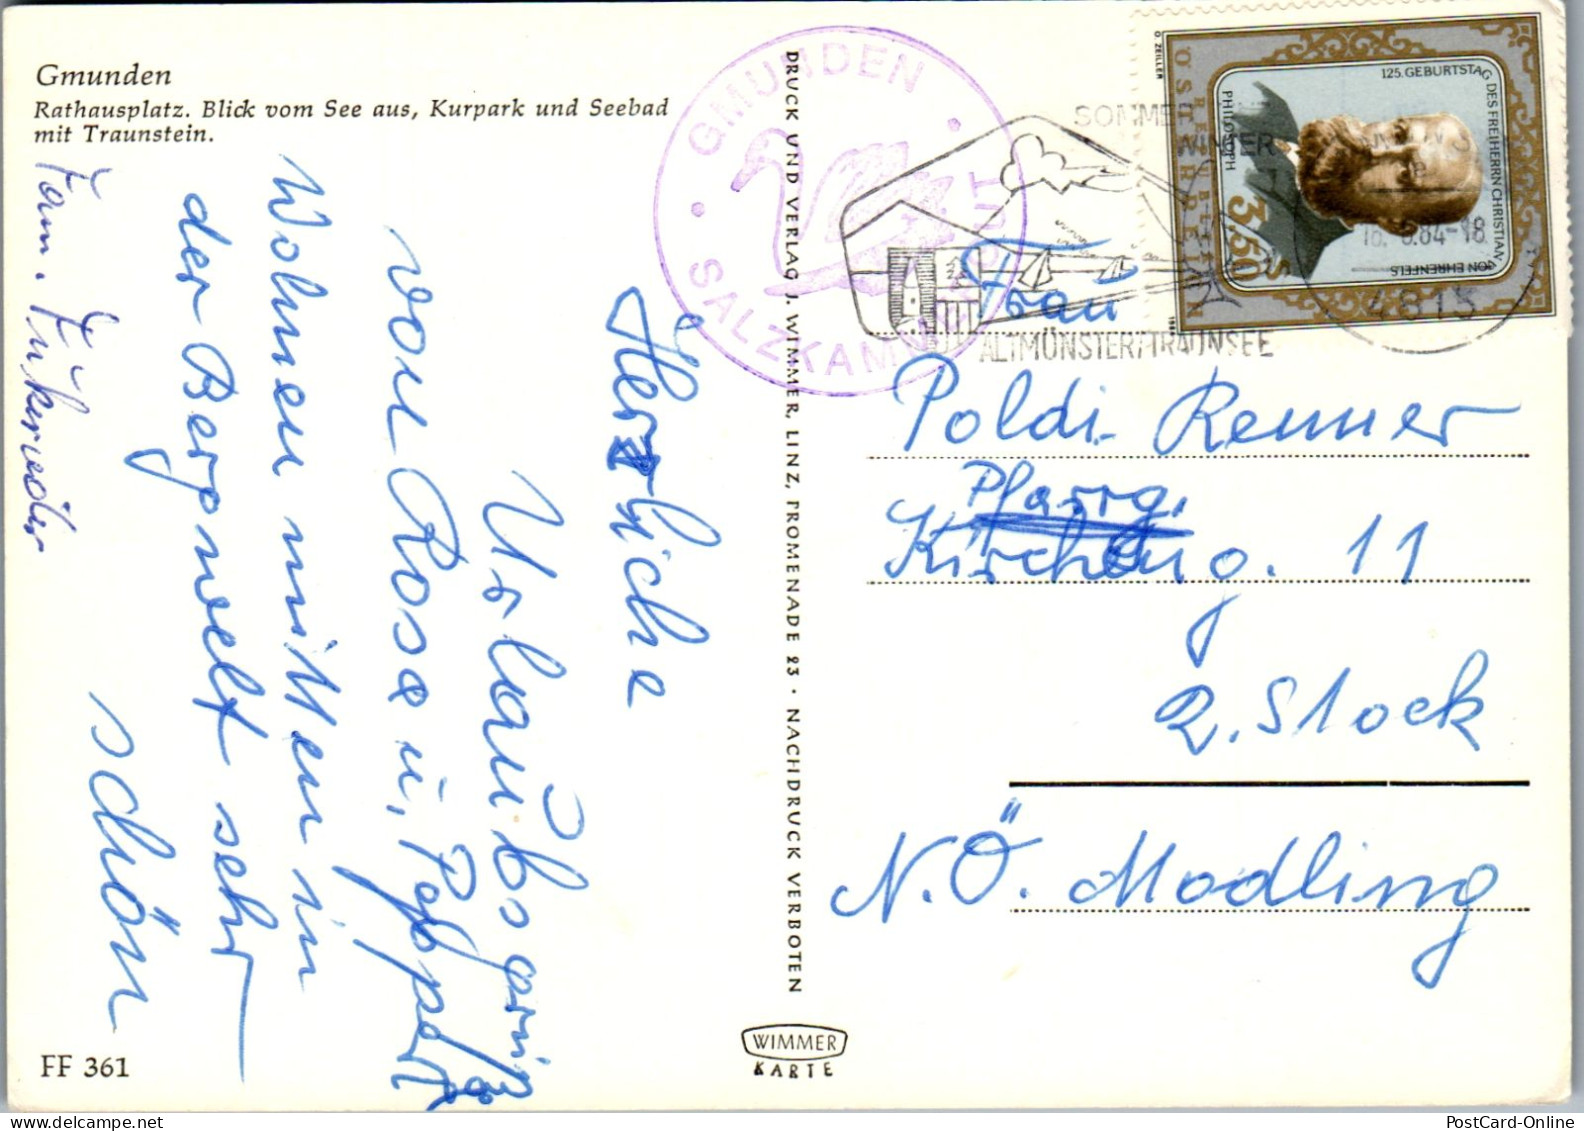 Gmunden
Rathausplatz. Blick vom See aus, Kurpark und Seebad
mit Traunstein.
Herzliche
Urlaubsgrüße
von Rosa u.
Wohnen mitten in
der Bergwelt sehr
schön
Fam.
FF 361
DRUCK UND VERLAG J. WIMMER, LINZ, PROMENADE 23 · NACHDRUCK VERBOTEN
WIMMER
KARTE
GMUNDEN
SALZKAMMERGUT
SOMMER
WINTER
ALTMÜNSTER/TRAUNSEE
4813
O. ZEILLER
REPUBLIK
ÖSTERREICH
125. GEBURTSTAG DES FREIHERRN CHRISTIAN
VON EHRENFELS
PHILOSOPH
3,50
Frau
Poldi Renner
Pfarrg.
Kircheng. 11
2. Stock
N.Ö. Modling
PostCard-Online